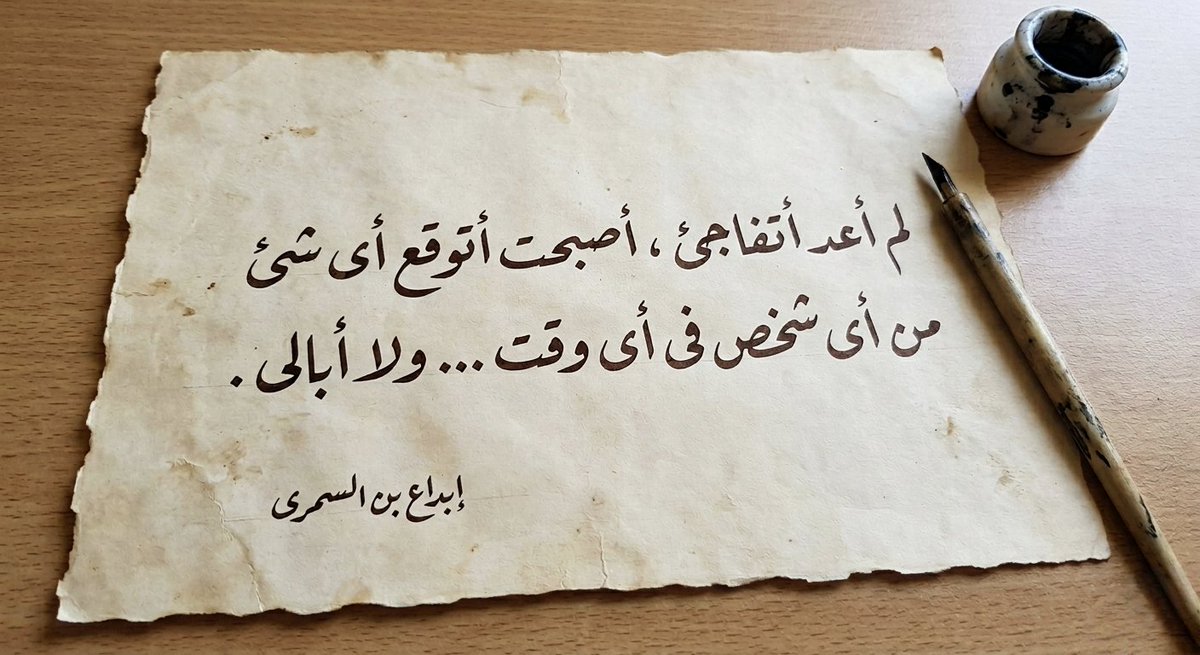 لم أعد أتفاجئ ، أصبحت أتوقع أى شئ
من أى شخص فى أى وقت ... ولا أبالى .
إبداع بن السمرى